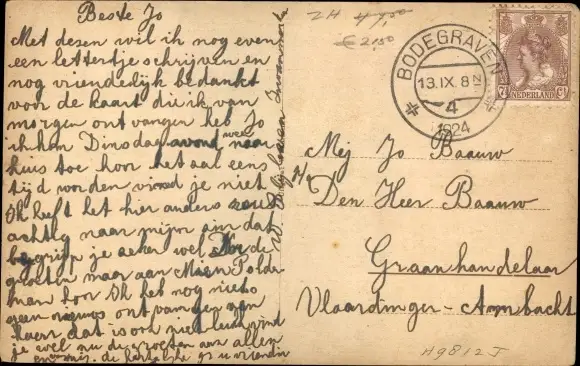 Beste Jo
Met dezen wil ik nog even
een lettertje schrijven en
nog vriendelijk bedankt
voor de kaart die ik van
morgen ontvangen heb Jo
ik kom Dinsdag avond weer naar
huis toe hoor het zal eens
tijd worden vind je niet
Ik heft het hier anders
achtig naar mijn zin dat
begrijp je zeker wel de
groeten maar aan Mien Polder
man hoor Ik heb nog niets
geen ontvangen van
haar dat is ook niet vind
je wel nu de groeten aan allen
en de hartelijke gr u vriendin
ZH
€ 2,50
BODEGRAVEN
13.IX. 8 N
4
1924
7½ 7½
NEDERLAND
Mej Jo Baauw
Den Heer Baauw
Graanhandelaar
Vlaardinger-Ambacht
A9812J